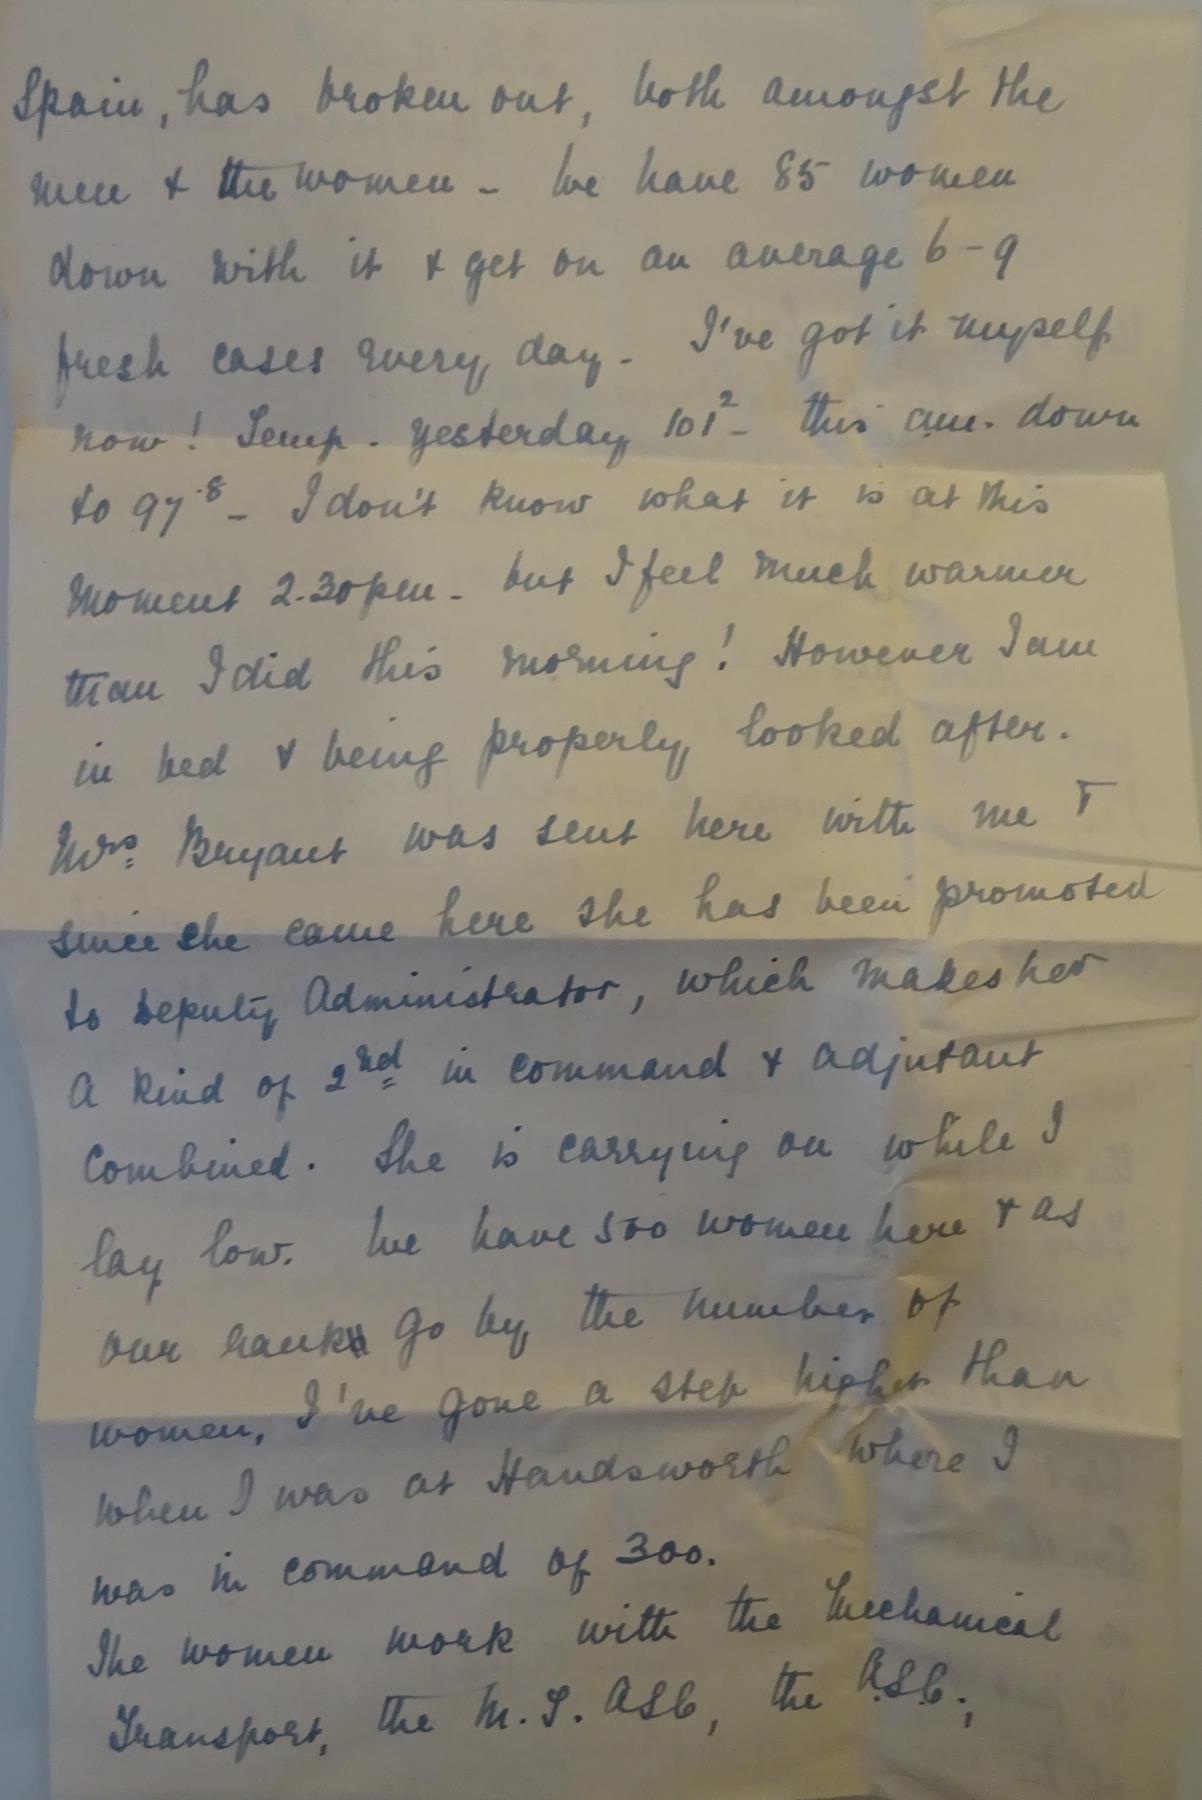 Spain, has broken out, both amongst the
men & the women - We have 85 women
down with it & get on an average 6-9
fresh cases every day - I've got it myself
now! Temp. yesterday 101² - this am. down
to 97.⁸ - I don't know what it is at this
moment 2-30pm - but I feel much warmer
than I did this morning! However I am
in bed & being properly looked after.
Mrs. Bryant was sent here with me &
since she came here she has been promoted
to Deputy Administrator, which makes her
a kind of 2nd in command & adjutant
combined. She is carrying on while I
lay low. We have 500 women here & as
our ranks go by the number of
women, I've gone a step higher than
when I was at Handsworth where I
was in command of 300.
The women work with the Mechanical
Transport, the M.T. ASC, the A.S.C.,